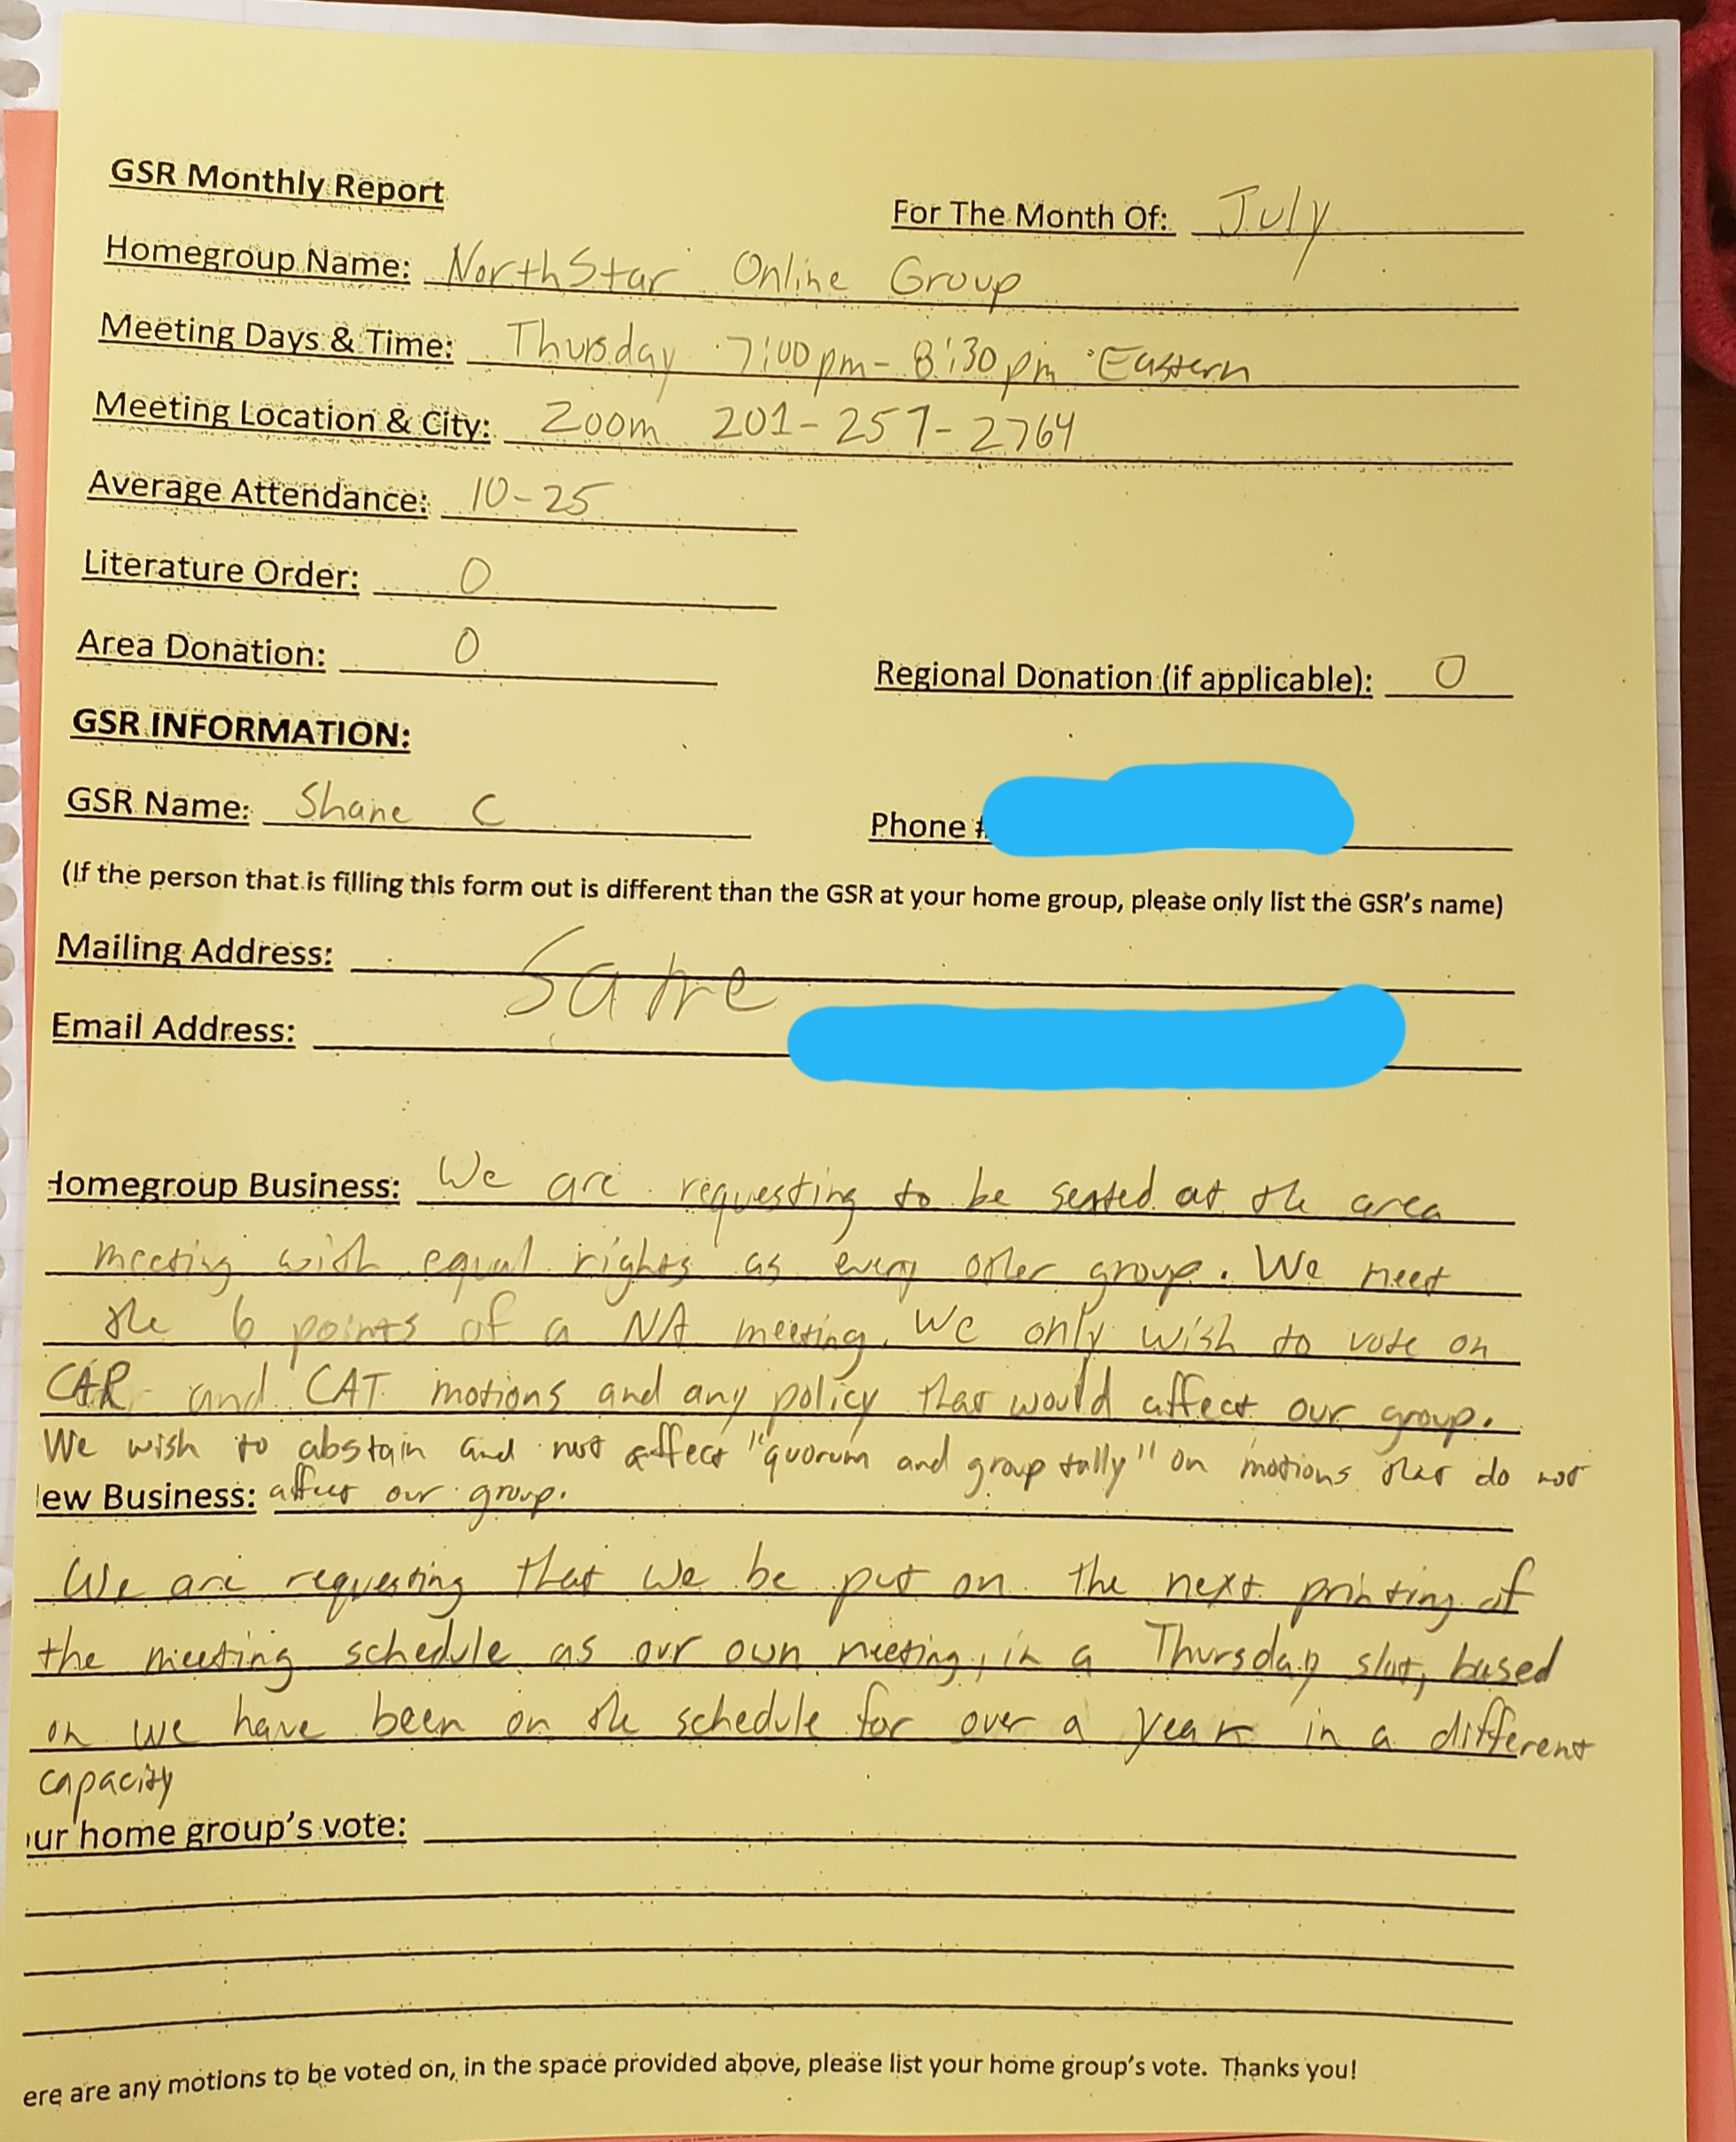 GSR Monthly Report
For The Month Of: July
Homegroup Name: NorthStar Online Group
Meeting Days & Time: Thursday 7:00pm- 8:30pm Eastern
Meeting Location & City: Zoom 201-257-2764
Average Attendance: 10-25
Literature Order: 0
Area Donation: 0
Regional Donation (if applicable): 0
GSR INFORMATION:
GSR Name: Shane C
Phone #
(If the person that is filling this form out is different than the GSR at your home group, please only list the GSR's name)
Mailing Address: Same
Email Address:
Homegroup Business: We are requesting to be seated at the area
meeting with equal rights as every other group. We meet
the 6 points of a NA meeting. We only wish to vote on
CAR and CAT motions and any policy that would affect our group.
We wish to abstain and not affect "quorum and group tally" on motions that do not
ew Business: affect our group.
We are requesting that we be put on the next printing of
the meeting schedule as our own meeting, in a Thursday slot, based
on we have been on the schedule for over a year in a different
capacity
ur home group's vote:
ere are any motions to be voted on, in the space provided above, please list your home group's vote. Thanks you!